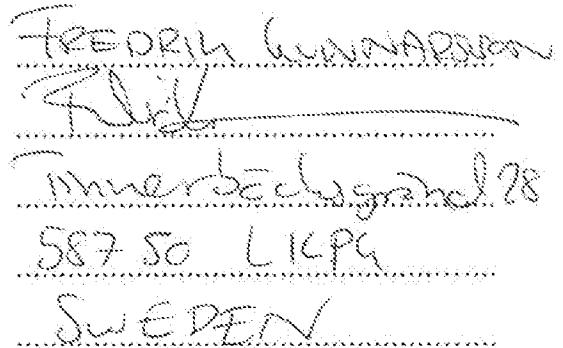 FREDRIK GUNNARSSON
Fredrik
Tinnerbäcksgränd 28
587 50 LKPG
SWEDEN